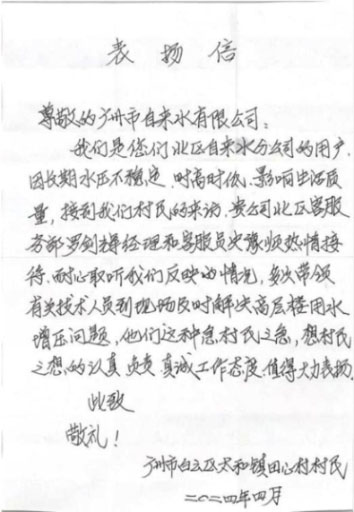 表扬信
尊敬的广州市自来水有限公司：
我们是您们北区自来水分公司的用户，
因长期水压不稳定，时高时低，影响生活质
量，接到我们村民的来访，贵公司北区客服
务部罗剑辉经理和客服员史豫顺热情接
待，耐心取听我们反映的情况，多次带领
有关技术人员到现场及时解决高层楼用水
增压问题，他们这种急村民之急，想村民
之想，的认真负责真诚工作态度，值得大力表扬。
此致
敬礼！
广州市白云区太和镇田心村村民
二〇二四年四月